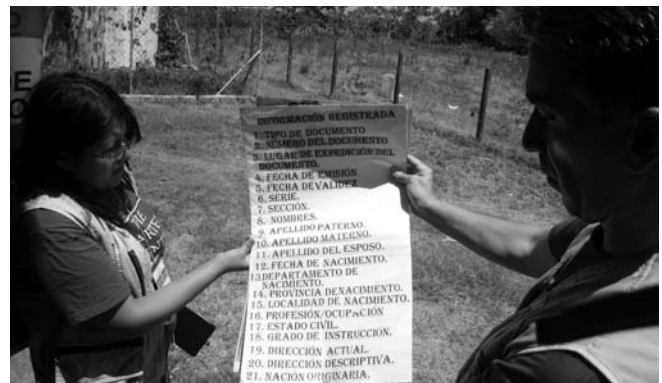 DE
INFORMACIÓN REGISTRADA
1. TIPO DE DOCUMENTO
2. NÚMERO DEL DOCUMENTO
3. LUGAR DE EXPEDICIÓN DEL
DOCUMENTO.
4. FECHA DE EMISIÓN
5. FECHA DE VALIDEZ
6. SERIE.
7. SECCIÓN.
8. NOMBRES.
9. APELLIDO PATERNO.
10. APELLIDO MATERNO.
11. APELLIDO DEL ESPOSO.
12. FECHA DE NACIMIENTO.
13. DEPARTAMENTO DE
NACIMIENTO.
14. PROVINCIA DENACIMIENTO.
15. LOCALIDAD DE NACIMIENTO.
16. PROFESIÓN/OCUPACIÓN
17. ESTADO CIVIL.
18. GRADO DE INSTRUCCION.
19. DIRECCIÓN ACTUAL.
20. DIRECCION DESCRIPTIVA.
21. NACIÓN ORIGINARIA.